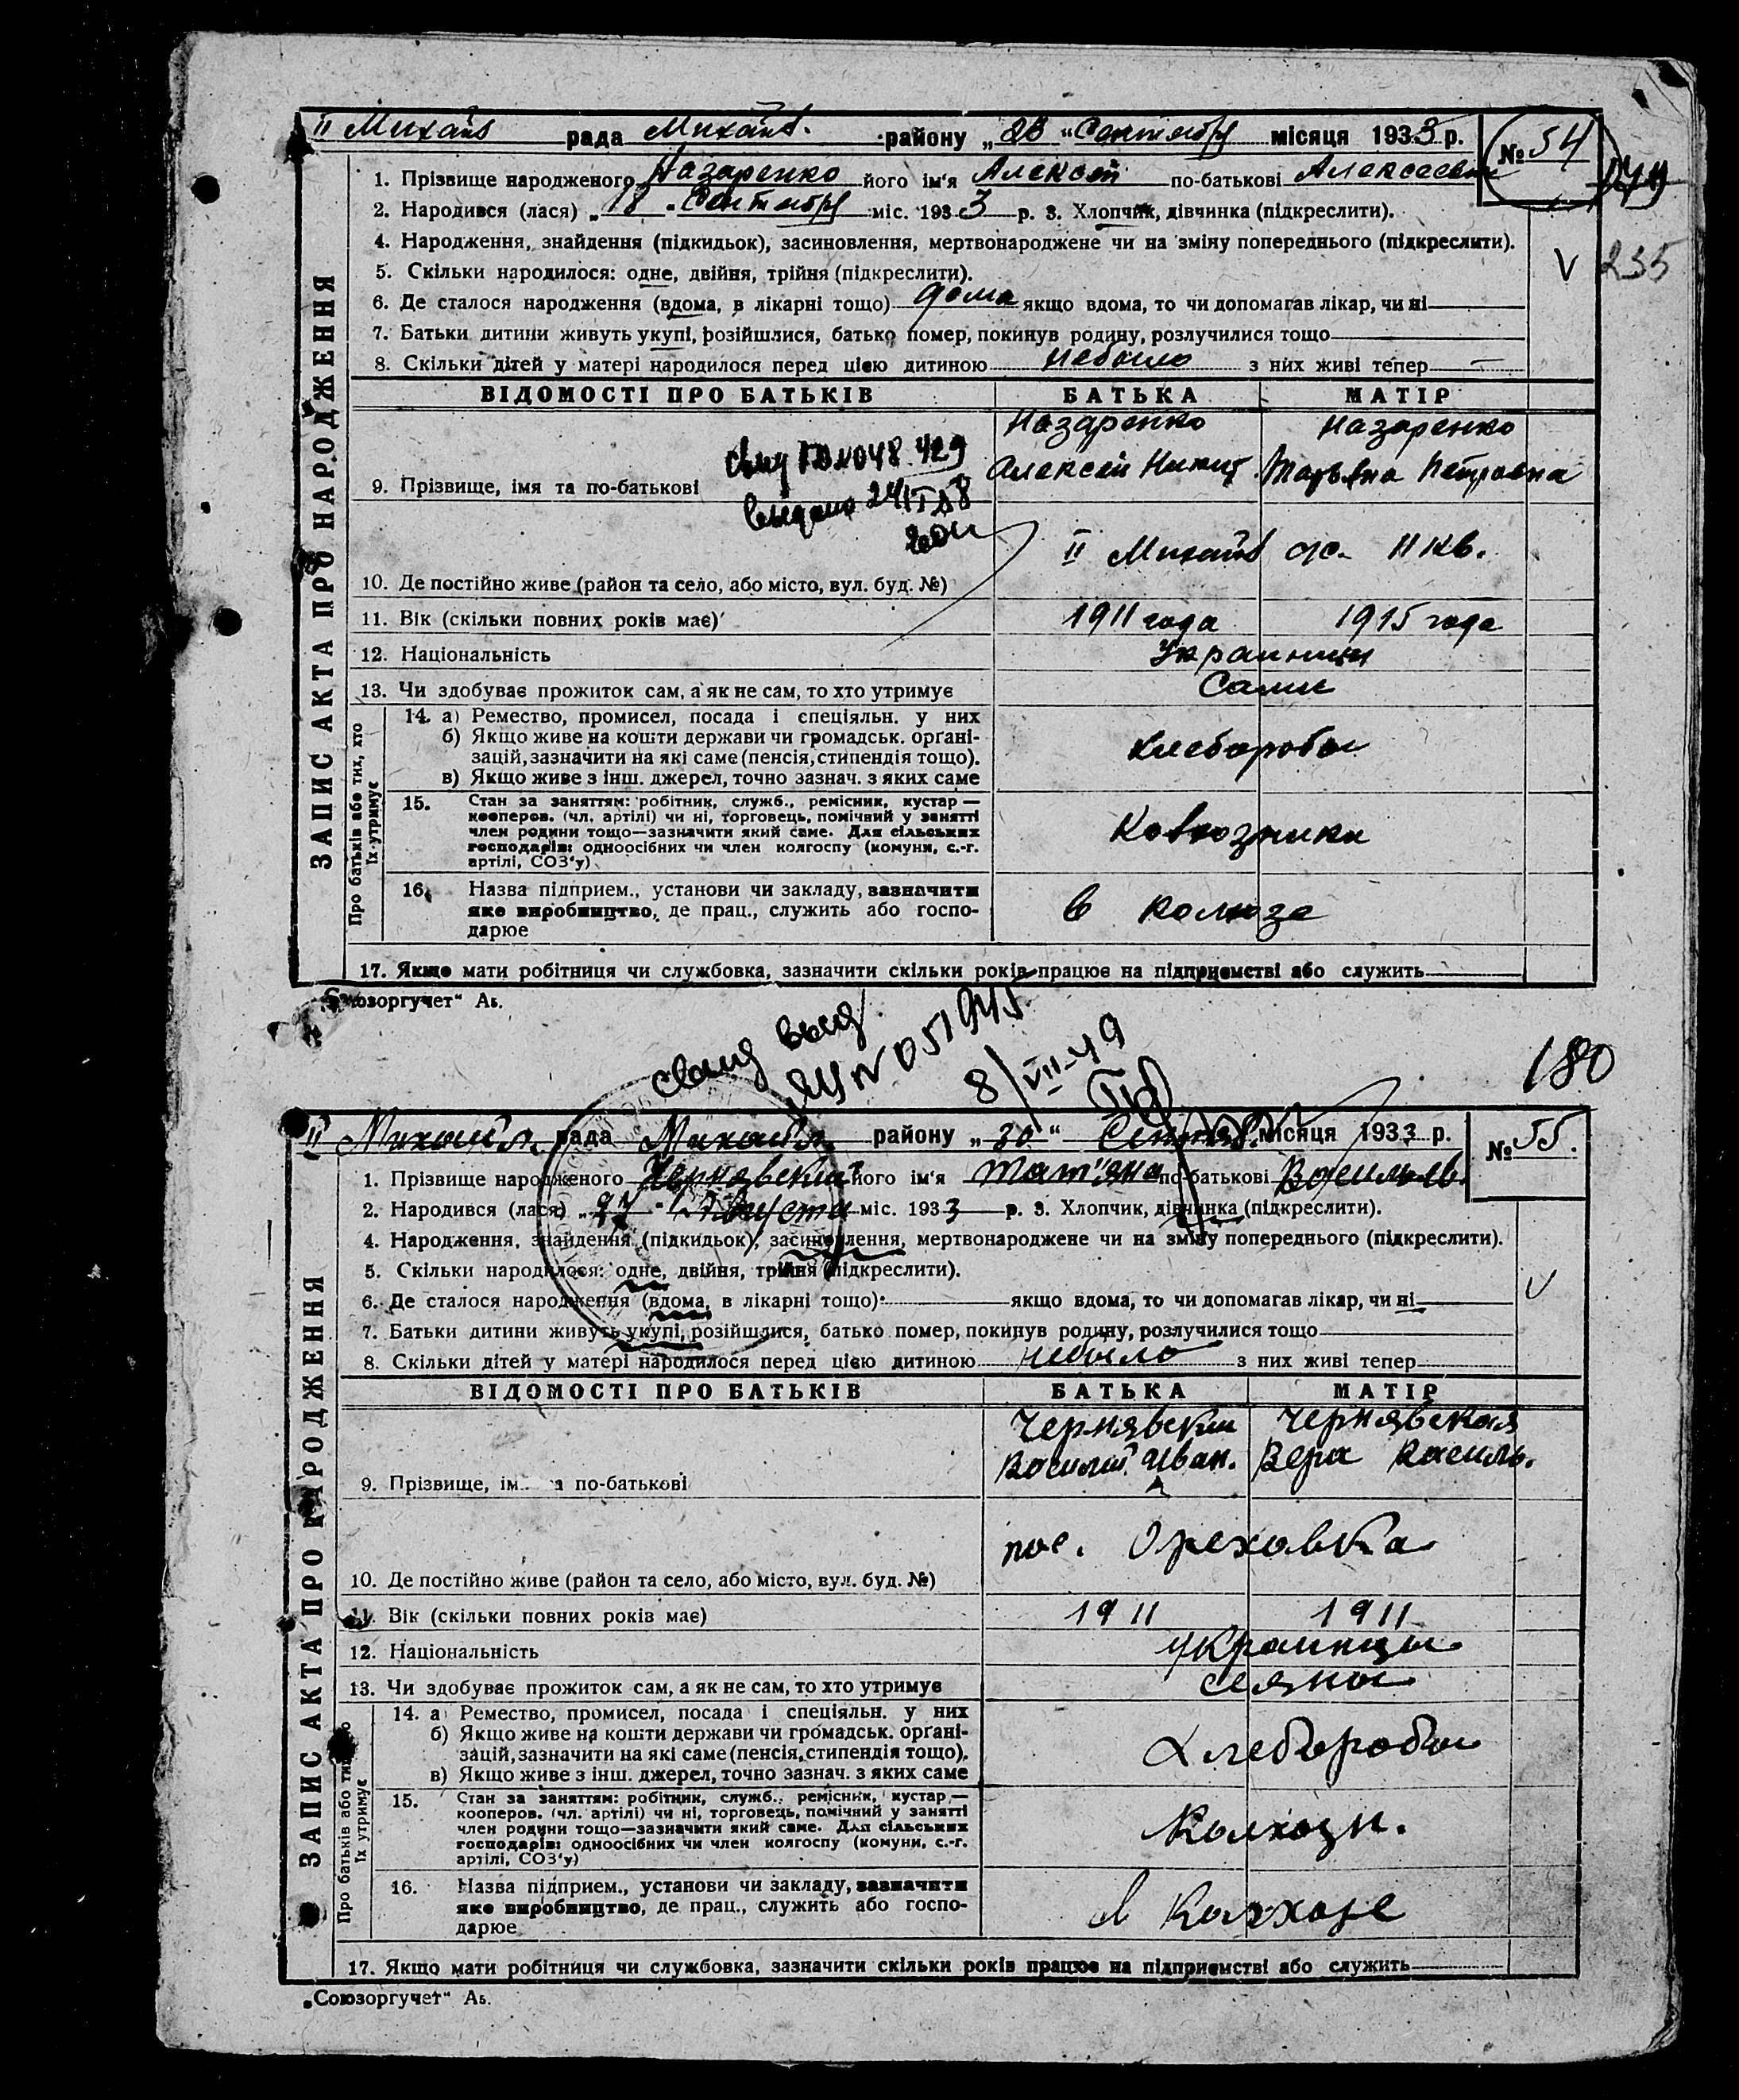 II Михайл рада Михайл. району „28 " Сентября місяця 1933 р. № 54
1. Прізвище народженого Назаренко його ім'я Алексей по-батькові Алексеевич
2. Народився (лася) „18 " Сентября міс. 1933 р. 3. Хлопчик, дівчинка (підкреслити).
4. Народження, знайдення (підкидьок), засиновлення, мертвонароджене чи на зміну попереднього (підкреслити).
5. Скільки народилося: одне, двійня, трійня (підкреслити).
V 235
6. Де сталося народження (вдома, в лікарні тощо) дома якщо вдома, то чи допомагав лікар, чи ні
7. Батьки дитини живуть укупі, розійшлися, батько помер, покинув родину, розлучилися тощо
8. Скільки дітей у матері народилося перед цією дитиною небыло з них живі тепер —
ВІДОМОСТІ ПРО БАТЬКІВ БАТЬКА МАТІР
Назаренко Назаренко
Алексей Никит. Татьяна Петровна
9. Прізвище, імя та по-батькові
выдано
II Михайл
10. Де постійно живе (район та село, або місто, вул. буд. №)
11. Вік (скільки повних років має) 1911 года 1915 года
12. Національність Украинцы
13. Чи здобуває прожиток сам, а як не сам, то хто утримує Сами
14. а) Ремество, промисел, посада і спеціяльн. у них
б) Якщо живе на кошти держави чи громадськ. орґані-
зацій, зазначити на які саме (пенсія, стипендія тощо).
в) Якщо живе з інш. джерел, точно зазнач. з яких саме
хлеборобы
15. Стан за заняттям: робітник, служб., ремісник, кустар —
кооперов. (чл. артілі) чи ні, торговець, помічний у занятті
член родини тощо—зазначити який саме. Для сільських
господарів: одноосібних чи член колгоспу (комуни, с.-г.
артілі, СОЗ'у)
Колхозники
16. Назва підприєм., установи чи закладу, зазначити
яке виробництво, де прац., служить або госпо-
дарює
в колхозе
17. Якщо мати робітниця чи службовка, зазначити скільки років працює на підприємстві або служить
ЗАПИС АКТА ПРО НАРОДЖЕННЯ
Про батьків або тих, хто
їх утримує
„Союзоргучет" Аь.
8/VII-49
180
II Михайл. рада Михайл. району „30 " Сентяб. місяця 1933 р. № 55.
1. Прізвище народженого його ім'я Тат'яна по-батькові Васильев.
2. Народився (лася) „27 " Августа міс. 1933 р. 3. Хлопчик, дівчинка (підкреслити).
4. Народження, знайдення (підкидьок), засиновлення, мертвонароджене чи на зміну попереднього (підкреслити).
5. Скільки народилося: одне, двійня, трійня (підкреслити).
V
6. Де сталося народження (вдома, в лікарні тощо) якщо вдома, то чи допомагав лікар, чи ні
7. Батьки дитини живуть укупі, розійшлися, батько помер, покинув родину, розлучилися тощо
8. Скільки дітей у матері народилося перед цією дитиною небыло з них живі тепер
ВІДОМОСТІ ПРО БАТЬКІВ БАТЬКА МАТІР
Чернявский Чернявская
Василий Иван. Вера Василь.
9. Прізвище, ім а по-батькові
пос. Ореховка
10. Де постійно живе (район та село, або місто, вул. буд. №)
11. Вік (скільки повних років має) 1911 1911
12. Національність украинцы
13. Чи здобуває прожиток сам, а як не сам, то хто утримує
14. а) Ремество, промисел, посада і спеціяльн. у них
б) Якщо живе на кошти держави чи громадськ. орґані-
зацій, зазначити на які саме (пенсія, стипендія тощо).
в) Якщо живе з інш. джерел, точно зазнач. з яких саме
Хлеборобы
15. Стан за заняттям: робітник, служб., ремісник, кустар —
кооперов. (чл. артілі) чи ні, торговець, помічний у занятті
член родини тощо—зазначити який саме. Для сільських
господарів: одноосібних чи член колгоспу (комуни, с.-г.
артілі, СОЗ'у)
Колхозн.
16. Назва підприєм., установи чи закладу, зазначити
яке виробництво, де прац., служить або госпо-
дарює
в Колхозе
17. Якщо мати робітниця чи службовка, зазначити скільки років працює на підприємстві або служить
ЗАПИС АКТА ПРО НАРОДЖЕННЯ
Про батьків або тих,
їх утримує
„Союзоргучет" Аь.